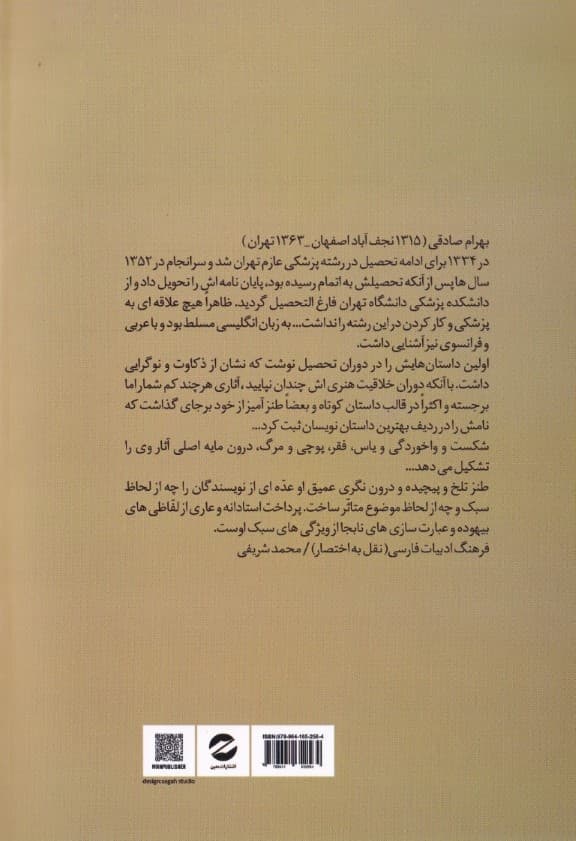 بهرام صادقی ( ۱۳۱۵ نجف آباد اصفهان _ ۱۳۶۳ تهران )
در ۱۳۳۴ برای ادامه تحصیل در رشته پزشکی عازم تهران شد و سرانجام در ۱۳۵۲
سال ها پس از آنکه تحصیلش به اتمام رسیده بود، پایان نامه اش را تحویل داد و از
دانشکده پزشکی دانشگاه تهران فارغ التحصیل گردید. ظاهراً هیچ علاقه ای به
پزشکی و کار کردن در این رشته را نداشت... به زبان انگلیسی مسلط بود و با عربی
و فرانسوی نیز آشنایی داشت.
اولین داستان‌هایش را در دوران تحصیل نوشت که نشان از ذکاوت و نوگرایی
داشت. با آنکه دوران خلاقیت هنری اش چندان نپایید ، آثاری هرچند کم شمار اما
برجسته و اکثراً در قالب داستان کوتاه و بعضاً طنز آمیز از خود برجای گذاشت که
نامش را در ردیف بهترین داستان نویسان ثبت کرد...
شکست و واخوردگی و یاس، فقر، پوچی و مرگ، درون مایه اصلی آثار وی را
تشکیل می دهد...
طنز تلخ و پیچیده و درون نگری عمیق او عدّه ای از نویسندگان را چه از لحاظ
سبک و چه از لحاظ موضوع متاثّر ساخت. پرداخت استادانه و عاری از لفّاظی های
بیهوده و عبارت سازی های نابجا از ویژگی های سبک اوست.
فرهنگ ادبیات فارسی( نقل به اختصار) / محمد شریفی
ISBN:978-964-165-258-4
انتشارات معین
MOINPUBLISHER
design:sagah studio